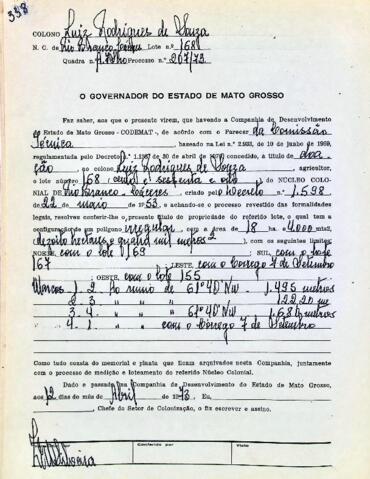 338
COLONO Luiz Rodrigues de Souza
N. C. de Rio Branco Lote n.º 168
Quadra n.º Processo n.º 267/73
O GOVERNADOR DO ESTADO DE MATO GROSSO
Faz saber, aos que o presente virem, que havendo a Companhia de Desenvolvimento
do Estado de Mato Grosso - CODEMAT-, de acôrdo com o Parecer da Comissão
Técnica, baseado na Lei n.º 2.933, de 10 de junho de 1969,
regulamentada pelo Decreto n.º de 30 de abril de concedido, a título de doa-
ção, ao colono Luiz Rodrigues de Souza, agricultor,
o lote número 168 cento sessenta e oito, do NÚCLEO COLO-
NIAL DE Rio Branco Cáceres, criado pelo Decreto n.º 1.598
de 22 de maio de 1953, e achando-se o processo revestido das formalidades
legais, resolveu conferir-lhe o presente título de propriedade do referido lote, o qual tem a
configuração de um polígono irregular, com a área de 18 ha. 4.000 m2
dezoito hectares e quatro mil metros2), com os seguintes limites:
NORTE, com o lote 169; SUL, com o lote
167; LESTE, com o Córrego 7 de Setembro
; OESTE, com o lote 155
Marcos 1. 2. Ao rumo de 61º40'NW 1.495 metros
2. 3. " " " 122,20 m
3. 4. " " " 61º40'NW 1.684 metros
4. 1. " " " com o Córrego 7 de Setembro
Como tudo consta do memorial e planta que ficam arquivados nesta Companhia, juntamente
com o processo de medição e loteamento do referido Núcleo Colonial.
Dado e passado na Companhia de Desenvolvimento do Estado de Mato Grosso,
aos 12 dias do mês de Abril de 1973. Eu,
, Chefe do Setor de Colonização, o fiz escrever e assino.
Conferido por Visto